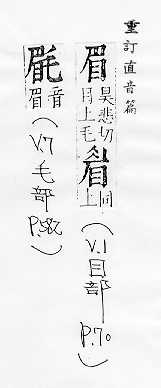 重訂直音篇
眉 悲切 目上毛 同上 (V.1 目部 P.70)
音眉 (V.7 毛部 P.582)